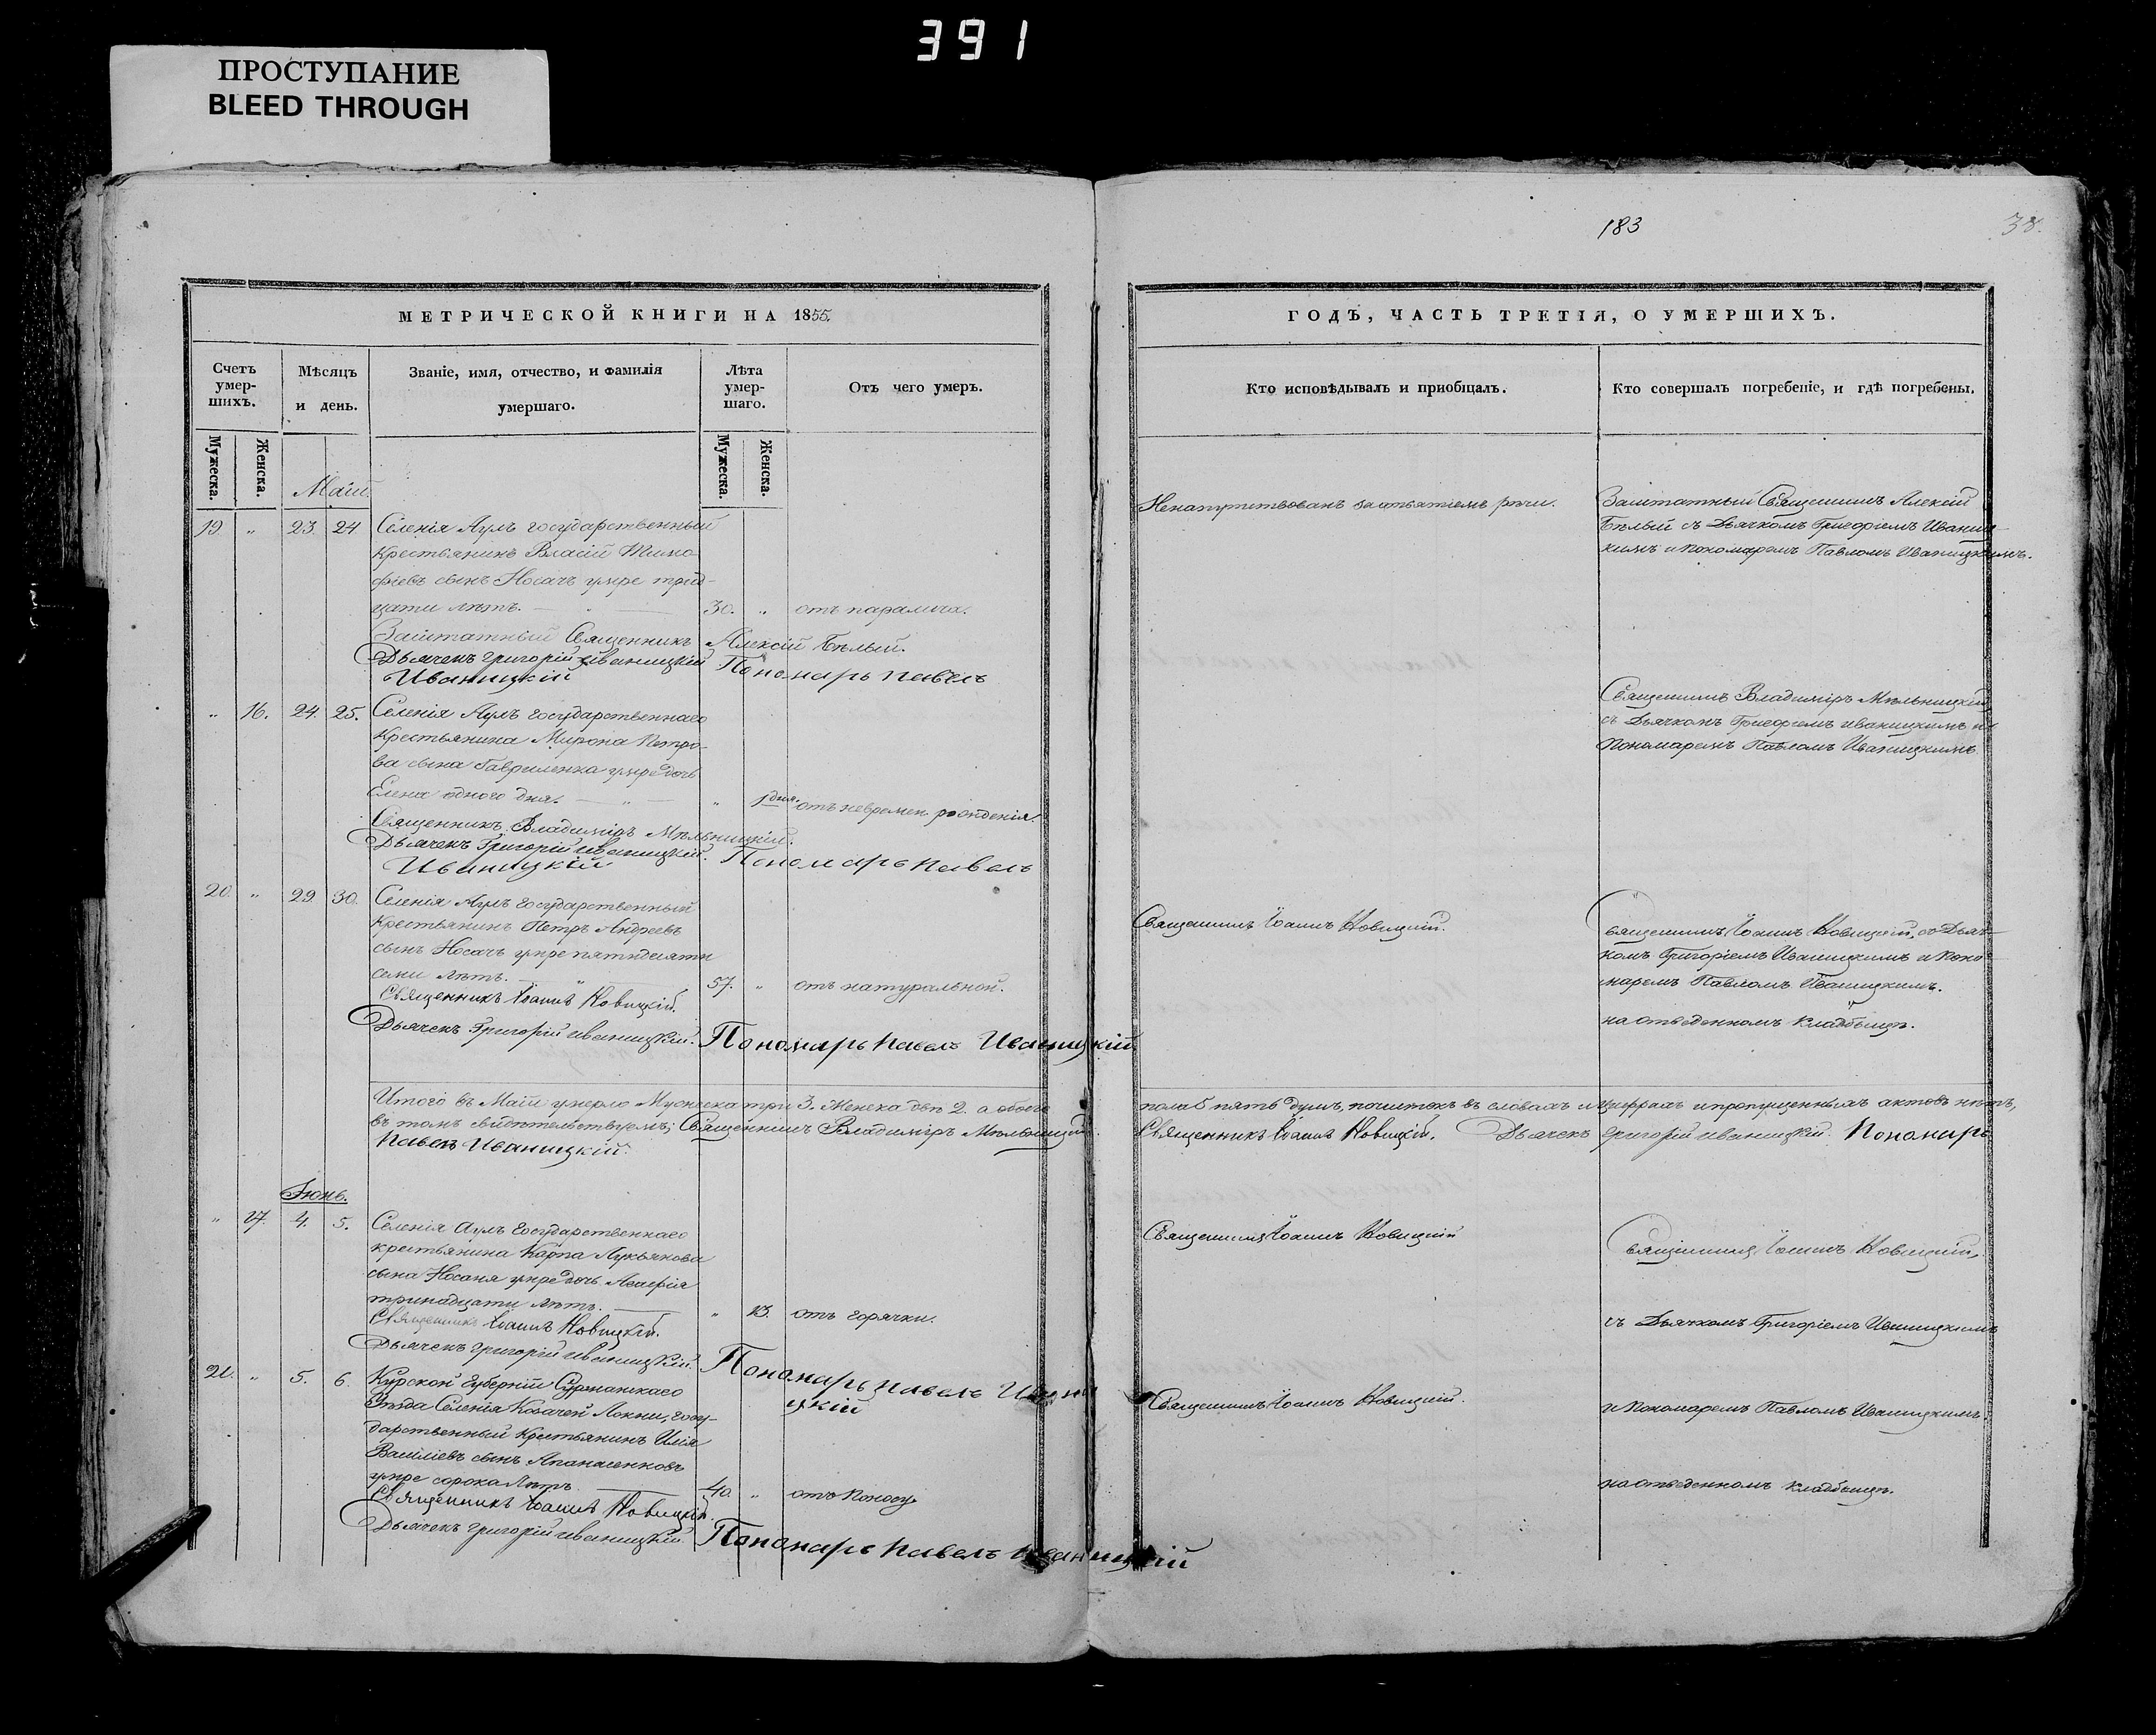 391
ПРОСТУПАНИЕ
BLEED THROUGH
183
38.
МЕТРИЧЕСКОЙ КНИГИ НА 1855.
Счетъ умер-шихъ.
Мѣсяцъ и день.
Званіе, имя, отчество, и фамилія умершаго.
Лѣта умер-шаго.
Отъ чего умеръ.
Мужеска.
Женска.
Мужеска.
Женска.
Маій.
19 „ 23. 24 Селенія Аулъ государственный
крестьянинъ Власій Тимо
фіевъ сынъ Носачъ умре трид-
цати лѣтъ. — „ — 30. „ отъ паралича.
Заштатный Священникъ Алексій Бѣлый.
Дьячекъ Григорій Иваницкій Пономарь Павелъ
Иваницкій
„ 16. 24. 25. Селенія Аулъ государственнаго
крестьянина Мирона Петро-
ва сына Гавриленка умре дочь
Елена одного дня. — „ — „ 1 дня. отъ невремен. рожденія.
Священникъ Владиміръ Мѣльницкій.
Дьячекъ Григорій Иваницкій. Пономарь Павелъ
Иваницкій
20. „ 29. 30. Селенія Аулъ государственный
крестьянинъ Петръ Андреевъ
сынъ Носачъ умре пятидесяти
семи лѣтъ. 57. „ отъ натуральной.
Священникъ Іоаннъ Новицкій.
Дьячекъ Григорій Иваницкій. Пономарь Павелъ Иваницкій
Итого въ Маіи умерло Мужеска три 3. Женска двѣ 2. а обоего
въ томъ свидѣтельствуемъ; Священникъ Владиміръ Мѣльницкій.
Павелъ Иваницкій.
Іюнь.
„ 17. 4. 5. Селенія Аулъ государственнаго
крестьянина Карпа Лукьянова
сына Носача умре дочь
тринадцати лѣтъ. — „ 13. отъ горячки.
Священникъ Іоаннъ Новицкій.
Дьячекъ Григорій Иваницкій. Пономарь Павелъ Ивани
цкій
21. „ 5. 6. Курской Губерніи Суджанскаго
Уѣзда Селенія Козачей Локни, госу-
дарственный крестьянинъ Илія
Василіевъ сынъ Апанасенковъ
умре сорока лѣтъ. — 40. „ отъ поносу
Священникъ Іоаннъ Новицкій.
Дьячекъ Григорій Иваницкій. Пономарь Павелъ Иваницкій
ГОДЪ, ЧАСТЬ ТРЕТІЯ, О УМЕРШИХЪ.
Кто исповѣдывалъ и пріобщалъ.
Кто совершалъ погребеніе, и гдѣ погребены.
Ненапутствованъ за отъятіемъ рѣчи.
Заштатный Священникъ Алексій
Бѣлый съ Дьячкомъ Григоріемъ Иваниц-
кимъ и Пономаремъ Павломъ Иваницкимъ.
Священникъ Владиміръ Мѣльницкій
съ Дьячкомъ Григоріемъ Иваницкимъ и
Пономаремъ Павломъ Иваницкимъ
Священникъ Іоаннъ Новицкій.
Священникъ Іоаннъ Новицкій, съ Дьяч-
комъ Григоріемъ Иваницкимъ и Поно-
маремъ Павломъ Иваницкимъ.
на отведенномъ кладбищѣ.
пола 5 пять душъ, почистокъ въ словахъ и цыфрахъ и пропущенныхъ актовъ нѣтъ,
Священникъ Іоаннъ Новицкій. Дьячекъ Григорій Иваницкій. Пономарь
Священникъ Іоаннъ Новицкій
Священникъ Іоаннъ Новицкій,
съ Дьячкомъ Григоріемъ Иваницкимъ
Священникъ Іоаннъ Новицкій.
и Пономаремъ Павломъ Иваницкимъ.
на отведенномъ кладбищѣ.